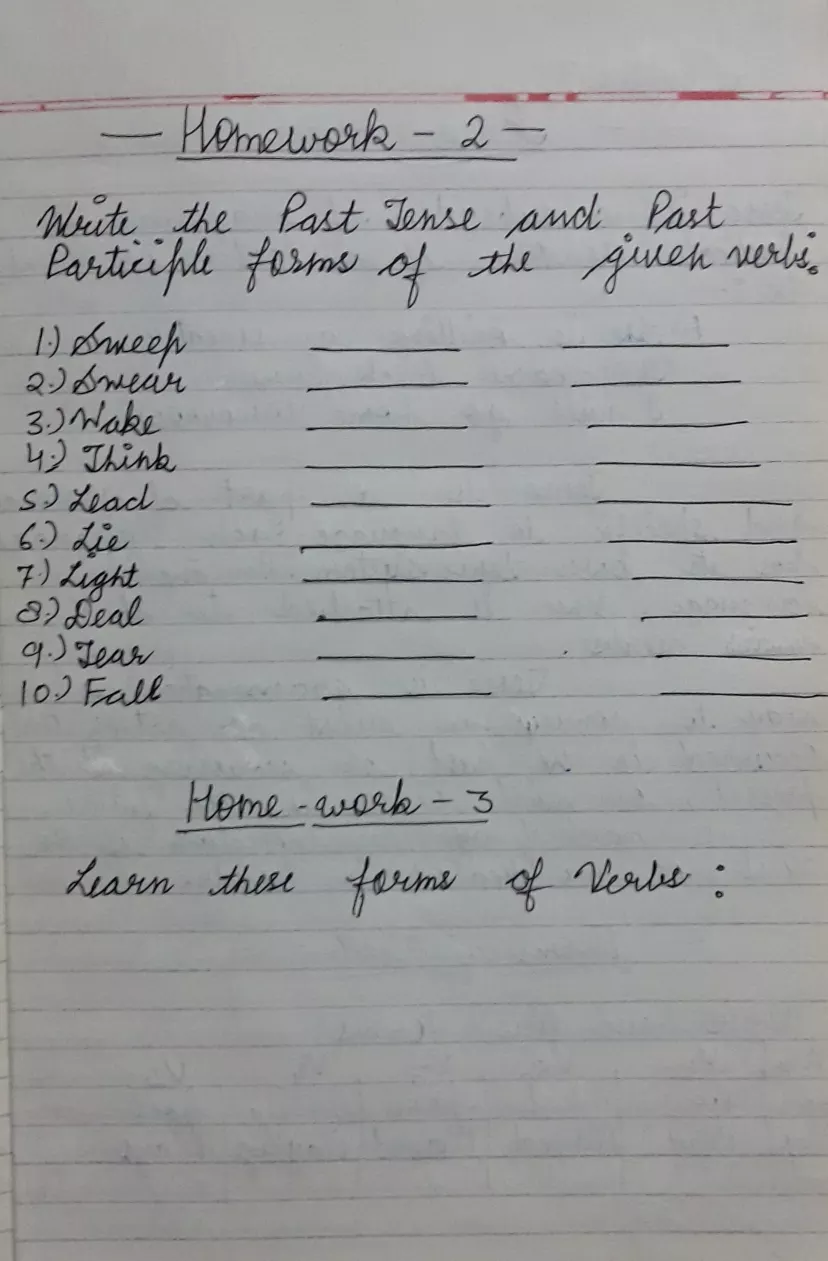 — Homework - 2 —
Write the Past Tense and Past
Participle forms of the given verbs.
1.) Sweep ______ ______
2.) Swear ______ ______
3.) Wake ______ ______
4.) Think ______ ______
5.) Lead ______ ______
6.) Lie ______ ______
7.) Light ______ ______
8.) Deal ______ ______
9.) Tear ______ ______
10.) Fall ______ ______
Home-work - 3
Learn these forms of Verbs :